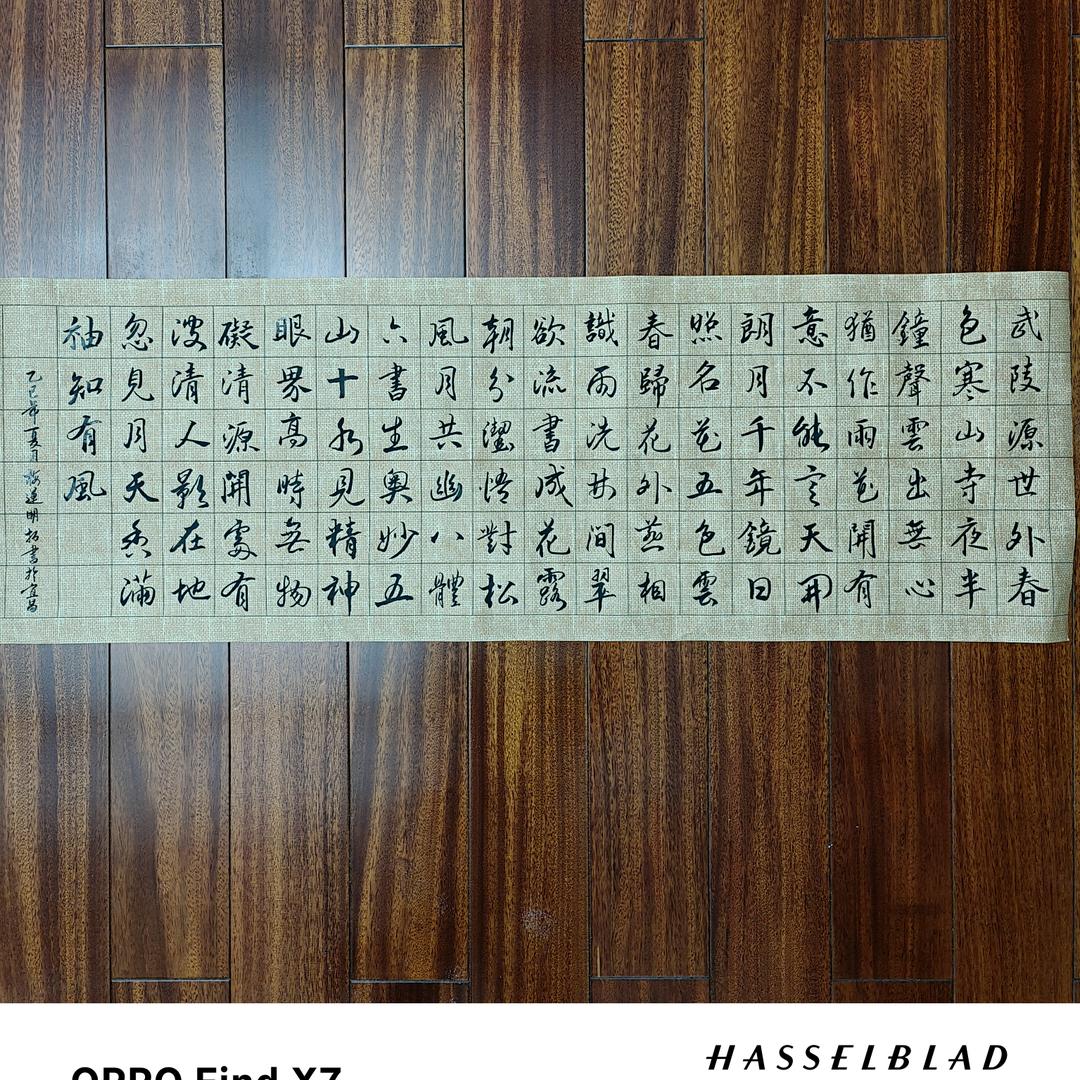 武陵源世外春
色寒山寺夜半
鐘聲雲出無心
猶作雨花開有
意不能言天開
朗月千年鏡日
照名花五色雲
春歸花外燕相
識雨洗林間翠
欲流書成花露
朝分潔悟對松
風月共幽八體
六書生奧妙五
山十水見精神
眼界高時無物
礙清源開處有
波清人影在地
忽見月天香滿
袖知有風
乙巳年夏月連明拓書於宜昌
OPPO Find X7
HASSELBLAD